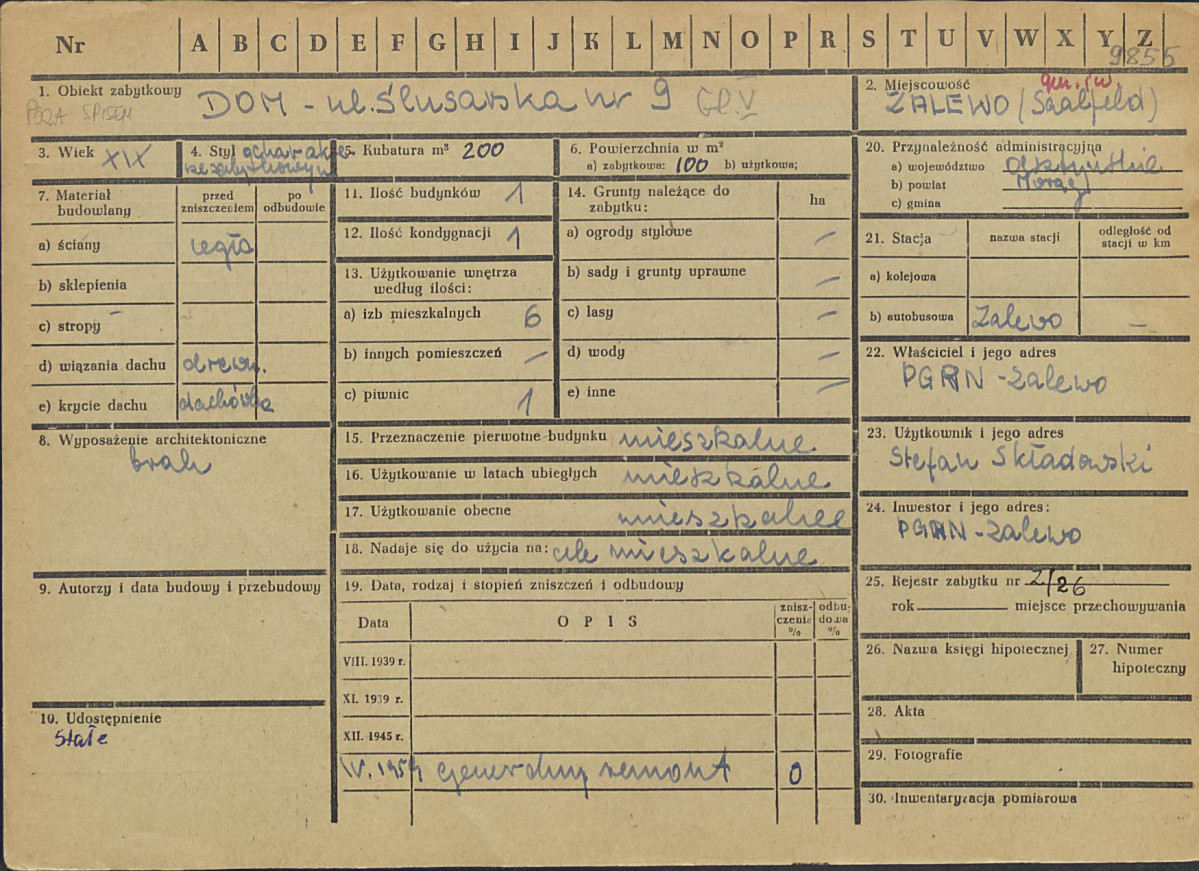 Nr A B C D E F G H I J K L M N O P R S T U V W X Y Z
9855
1. Obiekt zabytkowy DOM - ul. Ślusarska nr 9 Gl. V
POZA SPISEM
2. Miejscowość gm. i w.
ZALEWO (Saalfeld)
3. Wiek XIX
4. Styl o charakte-
rze zabytkowym
5. Kubatura m³ 200
6. Powierzchnia w m²
a) zabytkowa: 100 b) użytkowa;
7. Materiał budowlany
przed zniszczeniem
po odbudowie
a) ściany cegła
b) sklepienia
c) stropy -
d) wiązania dachu drewn.
e) krycie dachu dachówka
8. Wyposażenie architektoniczne
brak
9. Autorzy i data budowy i przebudowy
10. Udostępnienie
stałe
11. Ilość budynków 1
12. Ilość kondygnacji 1
13. Użytkowanie wnętrza
według ilości:
a) izb mieszkalnych 6
b) innych pomieszczeń -
c) piwnic 1
14. Grunty należące do
zabytku: ha
a) ogrody stylowe -
b) sady i grunty uprawne -
c) lasy -
d) wody -
e) inne -
15. Przeznaczenie pierwotne budynku mieszkalne
16. Użytkowanie w latach ubiegłych mieszkalne
17. Użytkowanie obecne mieszkalne
18. Nadaje się do użycia na: cele mieszkalne
19. Data, rodzaj i stopień zniszczeń i odbudowy
Data OPIS znisz-czenia % odbu-dowa %
VIII. 1939 r.
XI. 1939 r.
XII. 1945 r.
IV. 1959 generalny remont 0
20. Przynależność administracyjna
a) województwo olsztyńskie
b) powiat Morąg
c) gmina
21. Stacja nazwa stacji odległość od stacji w km
a) kolejowa
b) autobusowa Zalewo -
22. Właściciel i jego adres
PGRN - Zalewo
23. Użytkownik i jego adres
Stefan Składowski
24. Inwestor i jego adres:
PGRN - Zalewo
25. Rejestr zabytku nr 2/26
rok miejsce przechowywania
26. Nazwa księgi hipotecznej
27. Numer hipoteczny
28. Akta
29. Fotografie
30. Inwentaryzacja pomiarowa